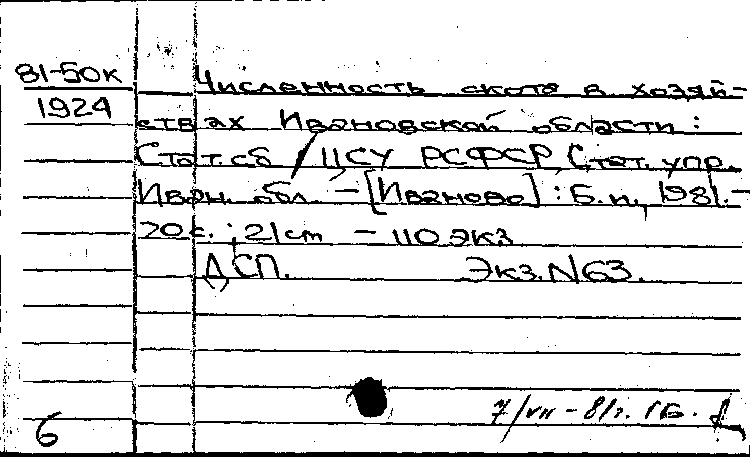 81-50к
1924
Численность скота в хозяй-
ствах Ивановской области:
Стат. сб / ЦСУ РСФСР, Стат. упр.
Иван. обл. – [Иваново] : Б. и., 1981. –
70 с. ; 21 cm – 110 экз
ДСП. Экз. N 63.
7/VII – 81 г. 1Б.
6